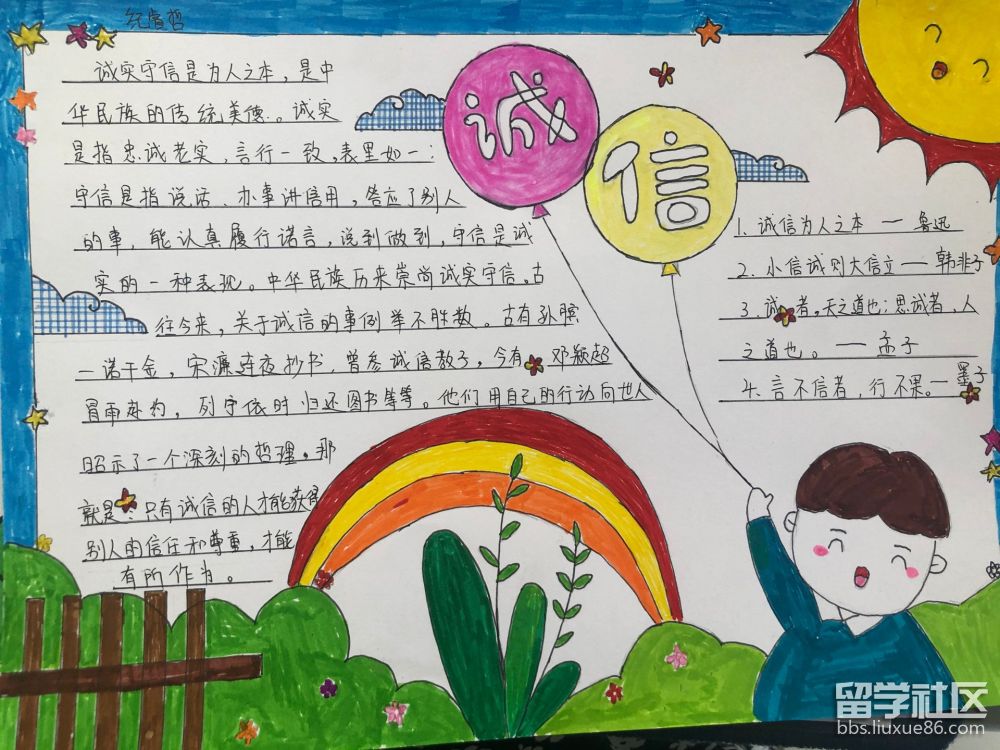 纪睿哲
诚实守信是为人之本，是中
华民族的传统美德。诚实
是指忠诚老实，言行一致，表里如一；
守信是指说话、办事讲信用，答应了别人
的事，能认真履行诺言，说到做到，守信是诚
实的一种表现。中华民族历来崇尚诚实守信。古
往今来，关于诚信的事例举不胜数。古有孙膑
一诺千金，宋濂连夜抄书，曾参诚信教子，今有邓颖超
冒雨赴约，列宁依时归还图书等等。他们用自己的行动向世人
昭示了一个深刻的哲理。那
就是：只有诚信的人才能获得
别人的信任和尊重，才能
有所作为。
诚信
1. 诚信为人之本 — 鲁迅
2. 小信诚则大信立 — 韩非子
3. 诚者。天之道也；思诚者，人
之道也。 — 孟子
4. 言不信者，行不果。— 墨子
留学社区
bbs.liuxue86.com